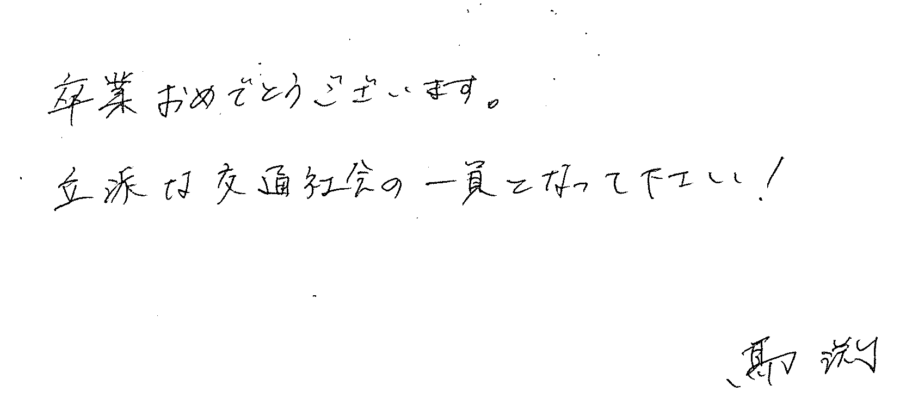 卒業おめでとうございます。
立派な交通社会の一員となって下さい!
馬渕